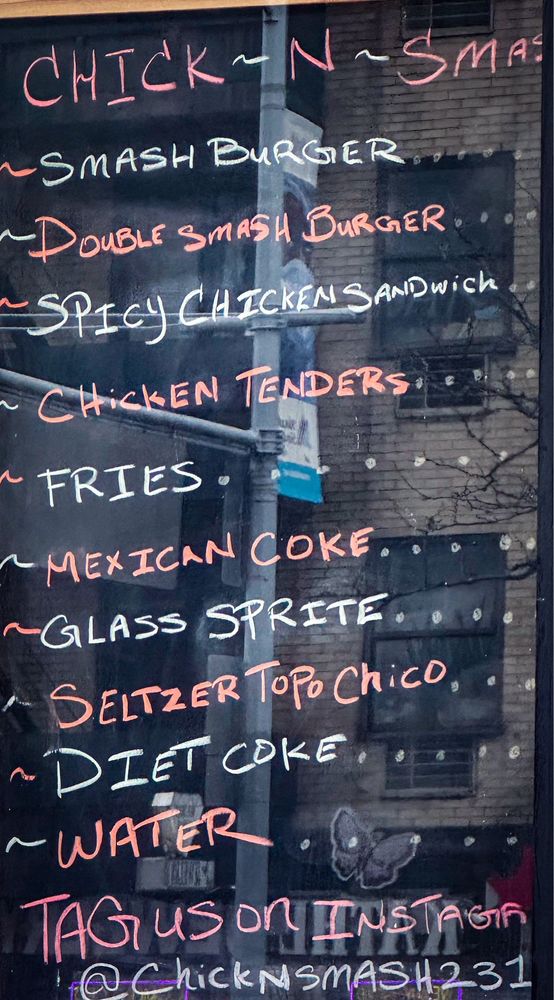 CHICK ~ N ~ SMAS
~ SMASH BURGER . . . .
~ DOUBLE SMASH BURGER . . .
~ SPICY CHICKEN SANDWich .
~ CHicKEN TENDERS . . . .
~ FRIES . . . . . . .
~ MEXICAN COKE . . . . .
~ GLASS SPRITE . . . .
~ SELTZER ToPo Chico . . .
~ DIET COKE . . . . .
~ WATER . . . . . .
TAG US ON INSTAGR
@ChickNSMASH231